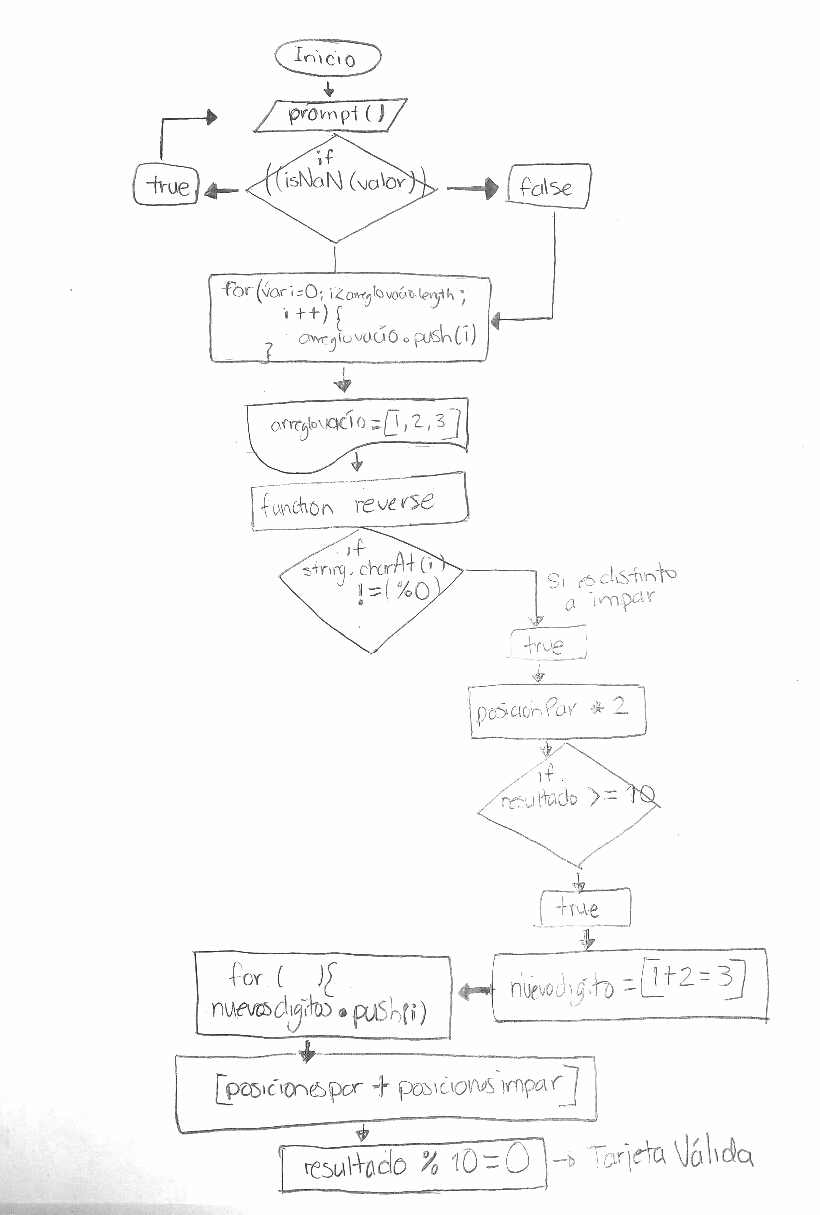 Inicio
prompt()
if
((isNaN(valor))
true
false
for(var i=0; i<arreglovacío.length;
i++){
arreglovacío.push(i)
}
arreglovacío=[1,2,3]
function reverse
if
string.charAt(i)
!=(%0)
Si es distinto
a impar
true
posicionPar * 2
if
resultado >= 10
true
nuevodigito=[1+2=3]
for ( ){
nuevosdigitos.push(i)
[posicionespar + posicionesimpar]
resultado % 10=0 → Tarjeta Válida